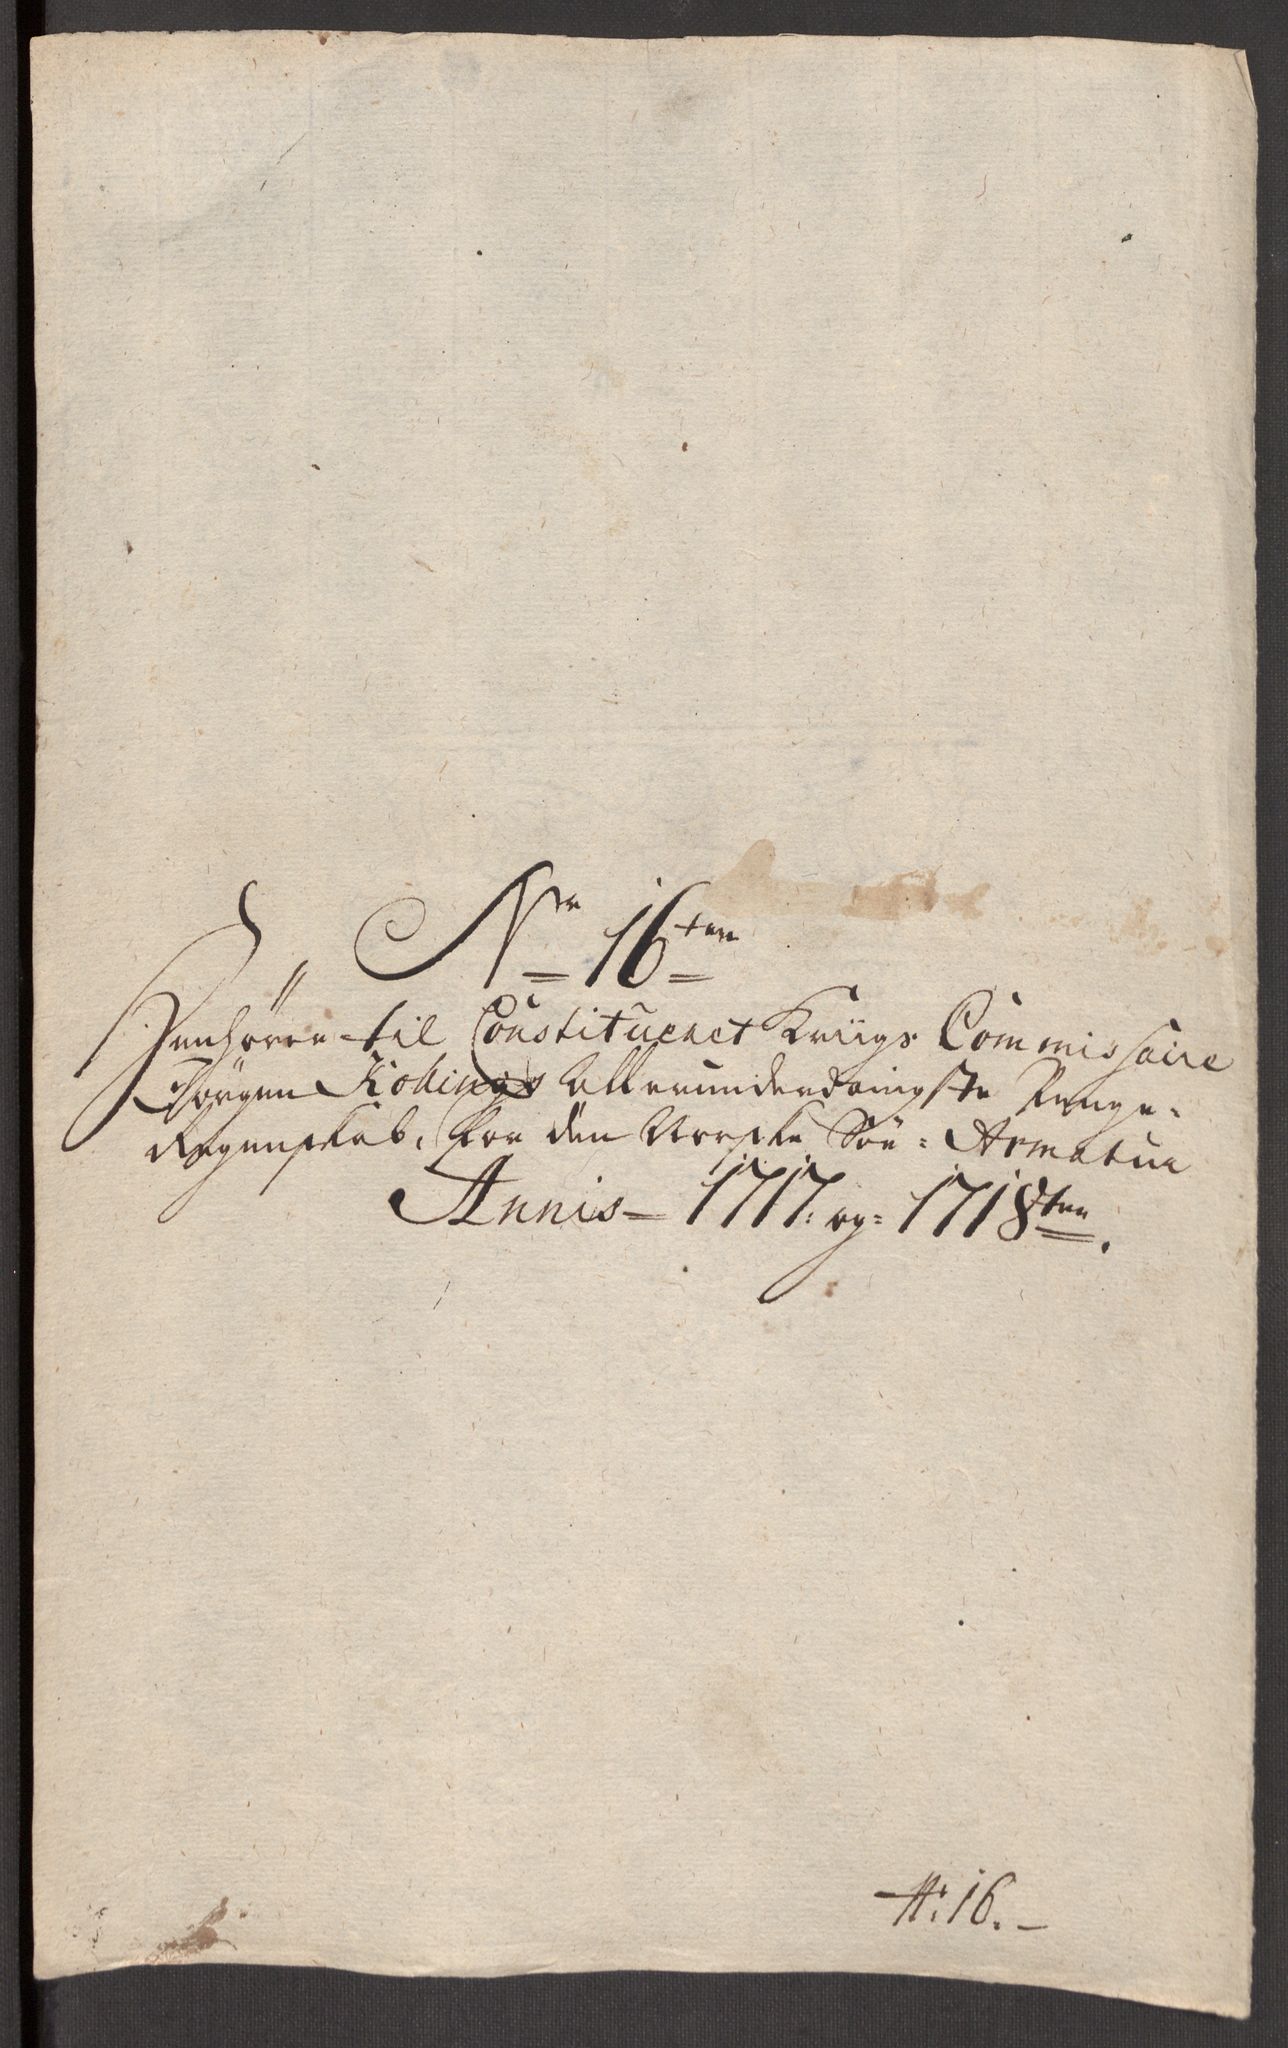 Nr 16ten
Henhører til Constitueret Kriigs Commissaire
Jörgen Kohings Allerunderdanigste Penge-
Regenskab, for den Norske Söe-Armatur
Annis 1717. og 1718ten.
N: 16.